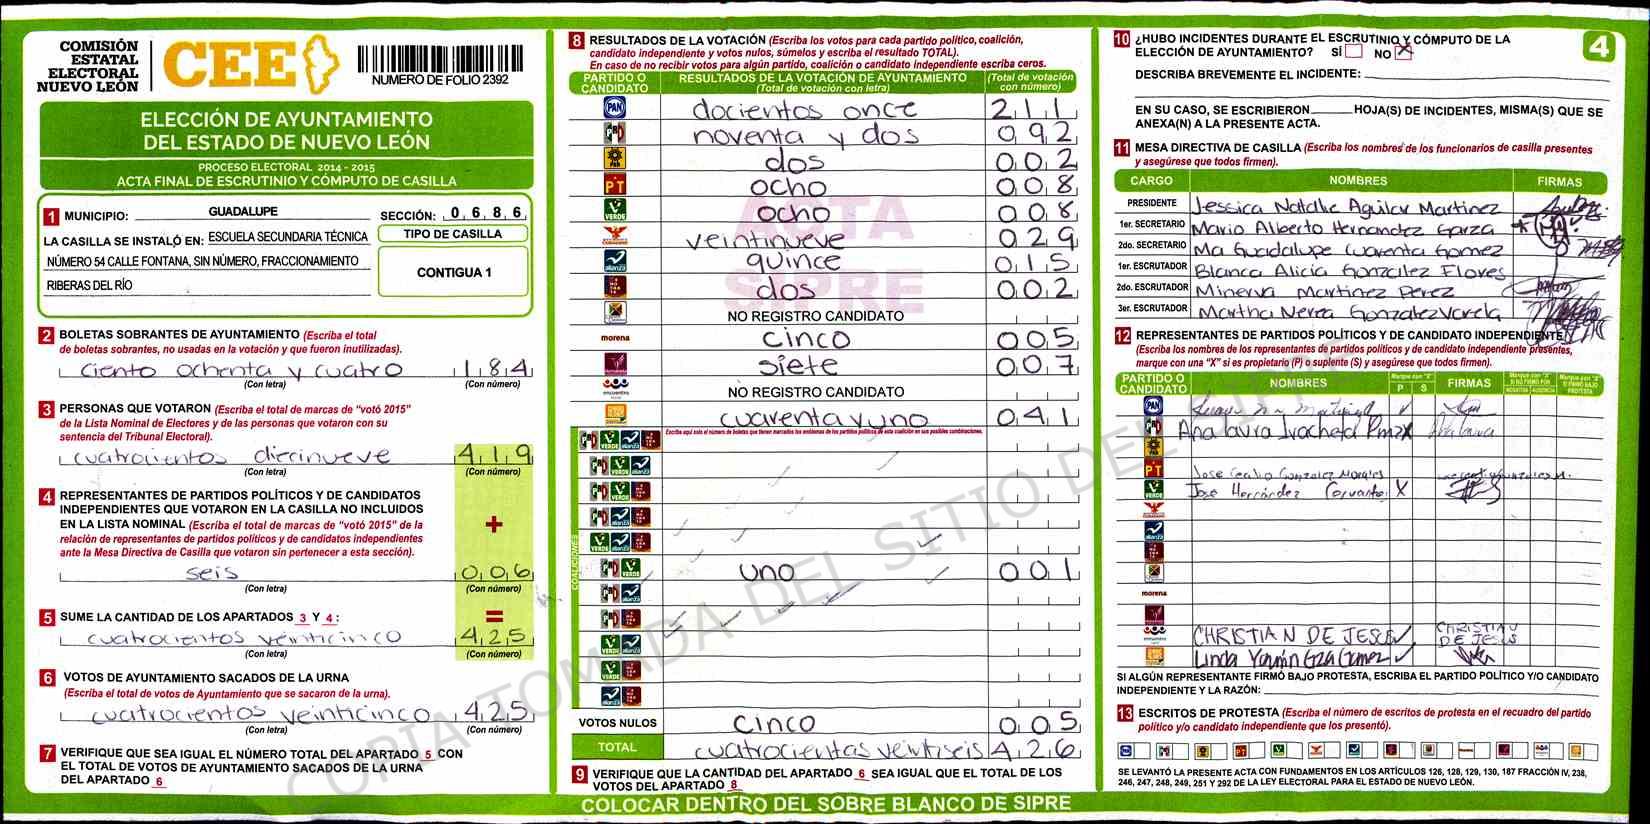 COMISIÓN
ESTATAL
ELECTORAL
NUEVO LEÓN
CEE
NUMERO DE FOLIO 2392
ELECCIÓN DE AYUNTAMIENTO
DEL ESTADO DE NUEVO LEÓN
PROCESO ELECTORAL 2014 - 2015
ACTA FINAL DE ESCRUTINIO Y CÓMPUTO DE CASILLA
1 MUNICIPIO: GUADALUPE SECCIÓN: 0 6 8 6
LA CASILLA SE INSTALÓ EN: ESCUELA SECUNDARIA TÉCNICA
NÚMERO 54 CALLE FONTANA, SIN NÚMERO, FRACCIONAMIENTO
RIBERAS DEL RÍO
TIPO DE CASILLA
CONTIGUA 1
2 BOLETAS SOBRANTES DE AYUNTAMIENTO (Escriba el total
de boletas sobrantes, no usadas en la votación y que fueron inutilizadas).
ciento ochenta y cuatro 184
(Con letra) (Con número)
3 PERSONAS QUE VOTARON (Escriba el total de marcas de "votó 2015"
de la Lista Nominal de Electores y de las personas que votaron con su
sentencia del Tribunal Electoral).
cuatrocientos diecinueve 419
(Con letra) (Con número)
4 REPRESENTANTES DE PARTIDOS POLÍTICOS Y DE CANDIDATOS
INDEPENDIENTES QUE VOTARON EN LA CASILLA NO INCLUIDOS
EN LA LISTA NOMINAL (Escriba el total de marcas de "votó 2015" de la
relación de representantes de partidos políticos y de candidatos independientes
ante la Mesa Directiva de Casilla que votaron sin pertenecer a esta sección).
+
seis 006
(Con letra) (Con número)
5 SUME LA CANTIDAD DE LOS APARTADOS 3 Y 4 : =
cuatrocientos veinticinco 425
(Con letra) (Con número)
6 VOTOS DE AYUNTAMIENTO SACADOS DE LA URNA
(Escriba el total de votos de Ayuntamiento que se sacaron de la urna).
cuatrocientos veinticinco 425
(Con letra) (Con número)
7 VERIFIQUE QUE SEA IGUAL EL NÚMERO TOTAL DEL APARTADO 5 CON
EL TOTAL DE VOTOS DE AYUNTAMIENTO SACADOS DE LA URNA
DEL APARTADO 6
8 RESULTADOS DE LA VOTACIÓN (Escriba los votos para cada partido político, coalición,
candidato independiente y votos nulos, súmelos y escriba el resultado TOTAL).
En caso de no recibir votos para algún partido, coalición o candidato independiente escriba ceros.
PARTIDO O CANDIDATO RESULTADOS DE LA VOTACIÓN DE AYUNTAMIENTO (Total de votación con letra) (Total de votación con número)
PAN docientos once 211
noventa y dos 092
dos 002
PT ocho 008
VERDE ocho 008
veintinueve 029
alianza quince 015
dos 002
NO REGISTRO CANDIDATO
morena cinco 005
siete 007
encuentro NO REGISTRO CANDIDATO
cuarenta y uno 041
COALICIONES
Escriba aquí solo el número de boletas que tienen marcados los emblemas de los partidos políticos de esta coalición en sus posibles combinaciones.
VERDE uno 001
VOTOS NULOS cinco 005
TOTAL cuatrocientas veintiseis 426
9 VERIFIQUE QUE LA CANTIDAD DEL APARTADO 6 SEA IGUAL QUE EL TOTAL DE LOS
VOTOS DEL APARTADO 8
COLOCAR DENTRO DEL SOBRE BLANCO DE SIPRE
ACTA
SIPRE
COPIA TOMADA DEL SITIO DEL SIPRE
10 ¿HUBO INCIDENTES DURANTE EL ESCRUTINIO Y CÓMPUTO DE LA
ELECCIÓN DE AYUNTAMIENTO? SÍ NO X
4
DESCRIBA BREVEMENTE EL INCIDENTE:
EN SU CASO, SE ESCRIBIERON HOJA(S) DE INCIDENTES, MISMA(S) QUE SE
ANEXA(N) A LA PRESENTE ACTA.
11 MESA DIRECTIVA DE CASILLA (Escriba los nombres de los funcionarios de casilla presentes
y asegúrese que todos firmen).
CARGO NOMBRES FIRMAS
PRESIDENTE Jessica Natalie Aguilar Martinez
1er. SECRETARIO Mario Alberto Hernandez Garza
2do. SECRETARIO Ma Guadalupe Cuarenta Gomez
1er. ESCRUTADOR Blanca Alicia Gonzalez Flores
2do. ESCRUTADOR Minerva Martinez Perez
3er. ESCRUTADOR Martha Nerea Gonzalez Varela
12 REPRESENTANTES DE PARTIDOS POLÍTICOS Y DE CANDIDATO INDEPENDIENTE
(Escriba los nombres de los representantes de partidos políticos y de candidato independiente presentes,
marque con una "X" si es propietario (P) o suplente (S) y asegúrese que todos firmen).
PARTIDO O CANDIDATO NOMBRES Marque con "X" P S FIRMAS
PAN
Ana Laura X
PT Jose Cecilio Gonzalez Morales
VERDE José Hernández Cervantes X
morena
CHRISTIAN DE JESUS CHRISTIAN DE JESUS
Linda Yazmin Gza Gomez
SI ALGÚN REPRESENTANTE FIRMÓ BAJO PROTESTA, ESCRIBA EL PARTIDO POLÍTICO Y/O CANDIDATO
INDEPENDIENTE Y LA RAZÓN:
13 ESCRITOS DE PROTESTA (Escriba el número de escritos de protesta en el recuadro del partido
político y/o candidato independiente que los presentó).
SE LEVANTÓ LA PRESENTE ACTA CON FUNDAMENTOS EN LOS ARTÍCULOS 126, 128, 129, 130, 187 FRACCIÓN IV, 238,
246, 247, 248, 249, 251 Y 292 DE LA LEY ELECTORAL PARA EL ESTADO DE NUEVO LEÓN.